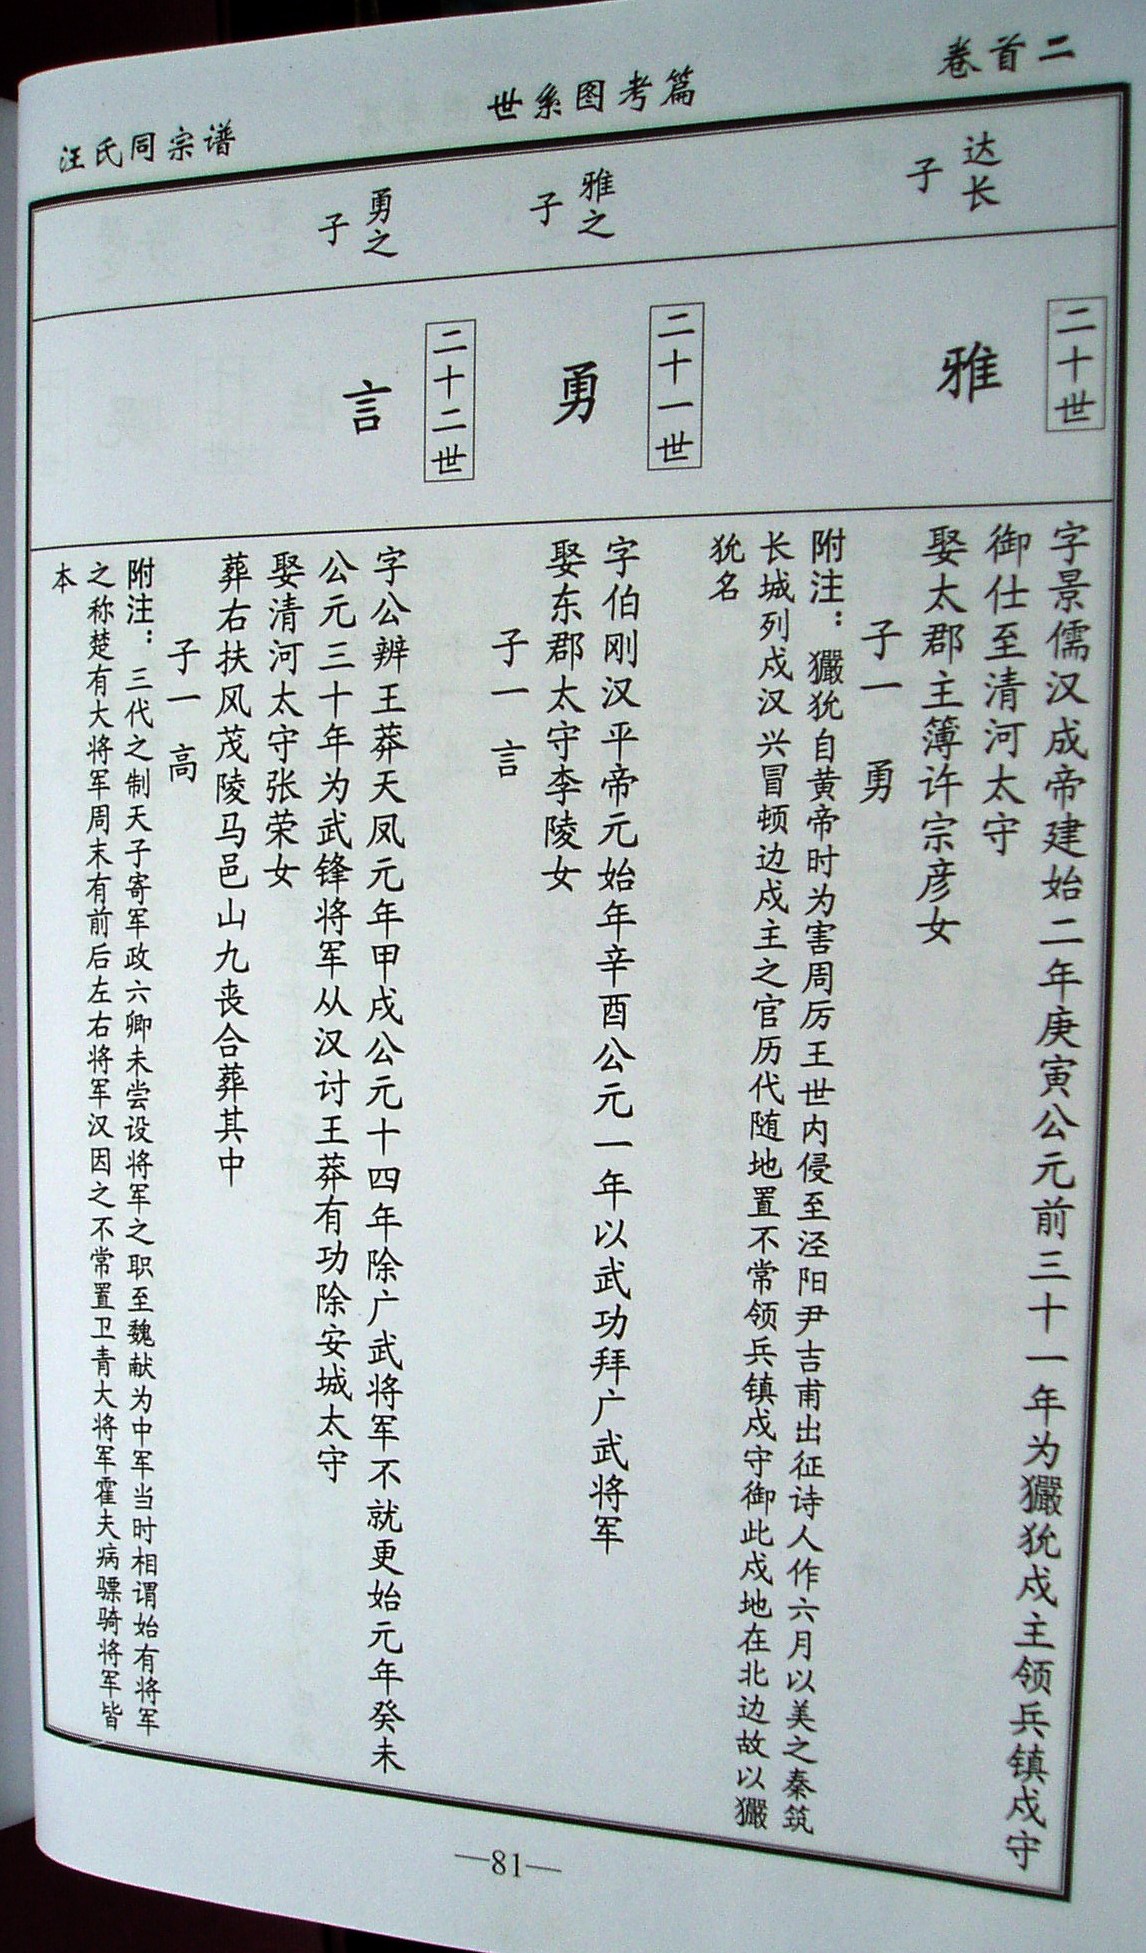 卷首二
世系图考篇
汪氏同宗谱
达长
子
二十世
雅
字景儒汉成帝建始二年庚寅公元前三十一年为玁狁戍主领兵镇戍守
御仕至清河太守
娶太郡主簿许宗彦女
子一 勇
附注：玁狁自黄帝时为害周厉王世内侵至泾阳尹吉甫出征诗人作六月以美之秦筑
长城列戍汉兴冒顿边戍主之官历代随地置不常领兵镇戍守御此戍地在北边故以玁
狁名
雅之
子
二十一世
勇
字伯刚汉平帝元始年辛酉公元一年以武功拜广武将军
娶东郡太守李陵女
子一 言
勇之
子
二十二世
言
字公辨王莽天凤元年甲戌公元十四年除广武将军不就更始元年癸未
公元三十年为武锋将军从汉讨王莽有功除安城太守
娶清河太守张荣女
葬右扶风茂陵马邑山九丧合葬其中
子一 高
附注：三代之制天子寄军政六卿未尝设将军之职至魏献为中军当时相谓始有将军
之称楚有大将军周末有前后左右将军汉因之不常置卫青大将军霍夫病骠骑将军皆
本
—81—